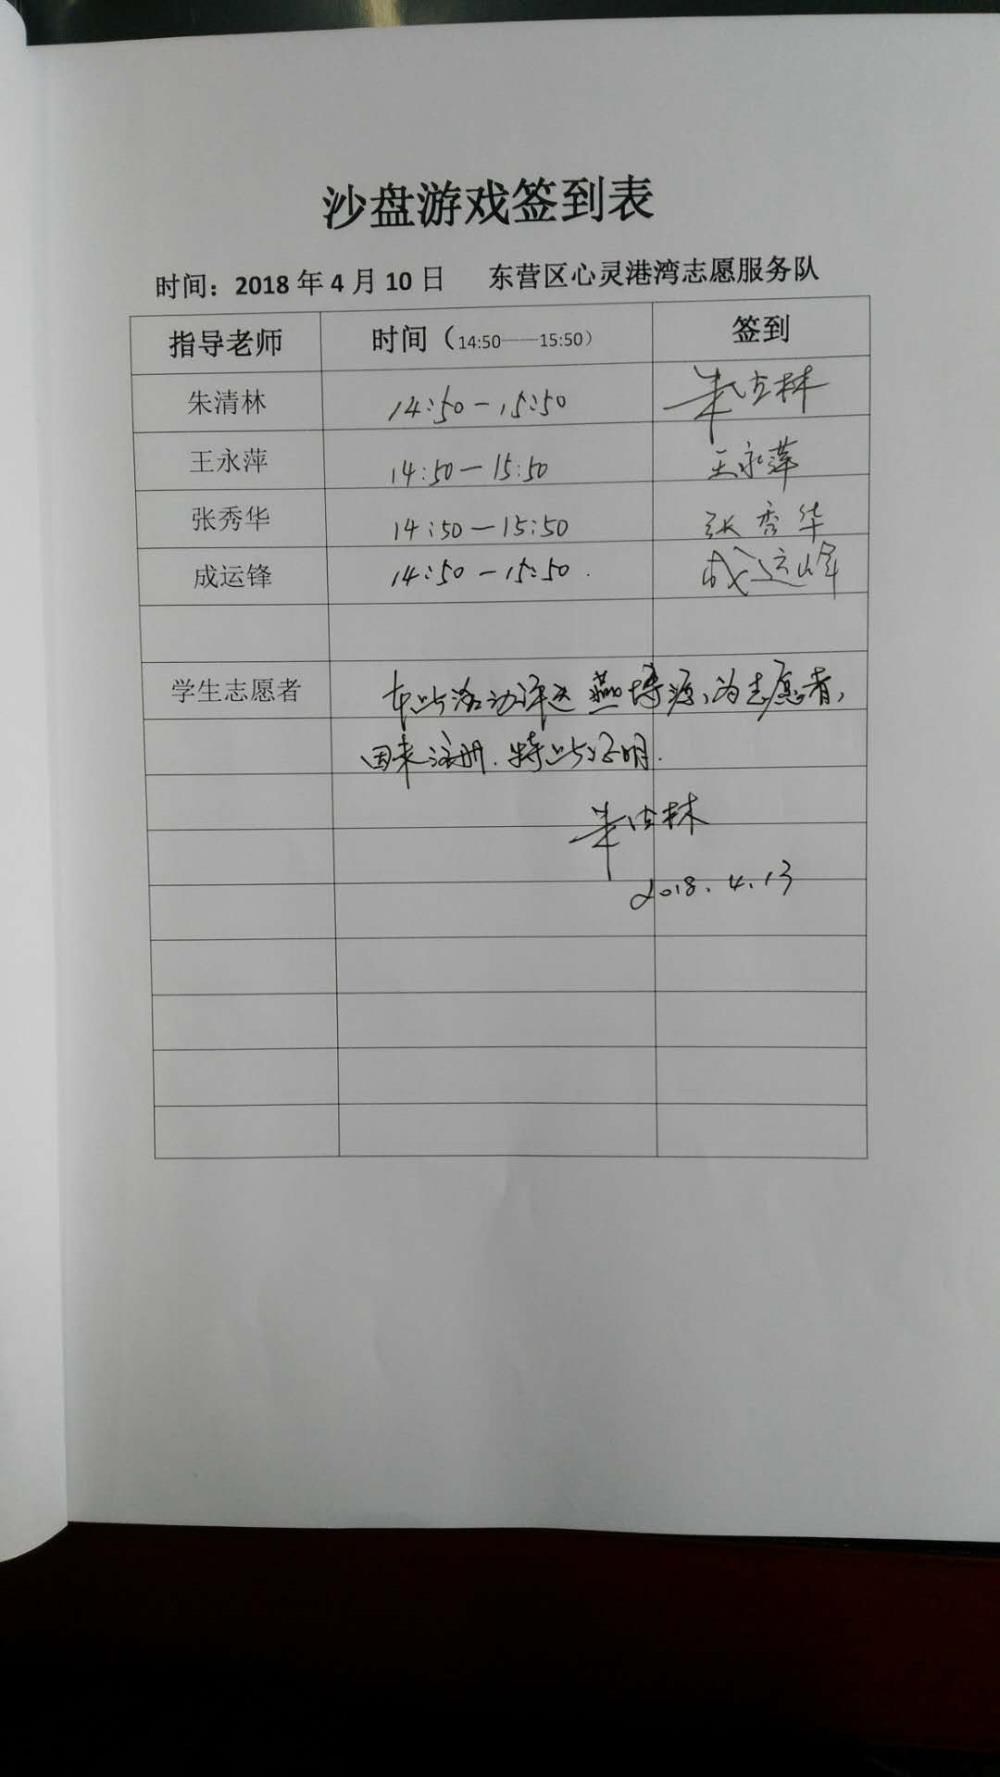 沙盘游戏签到表
时间：2018年4月10日 东营区心灵港湾志愿服务队
指导老师 时间（14:50——15:50） 签到
朱清林 14:50-15:50 朱清林
王永萍 14:50-15:50 王永萍
张秀华 14:50-15:50 张秀华
成运锋 14:50-15:50. 成运峰
学生志愿者 本次活动 燕博源、为志愿者,
因未注册.特此证明.
朱清林
2018.4.13